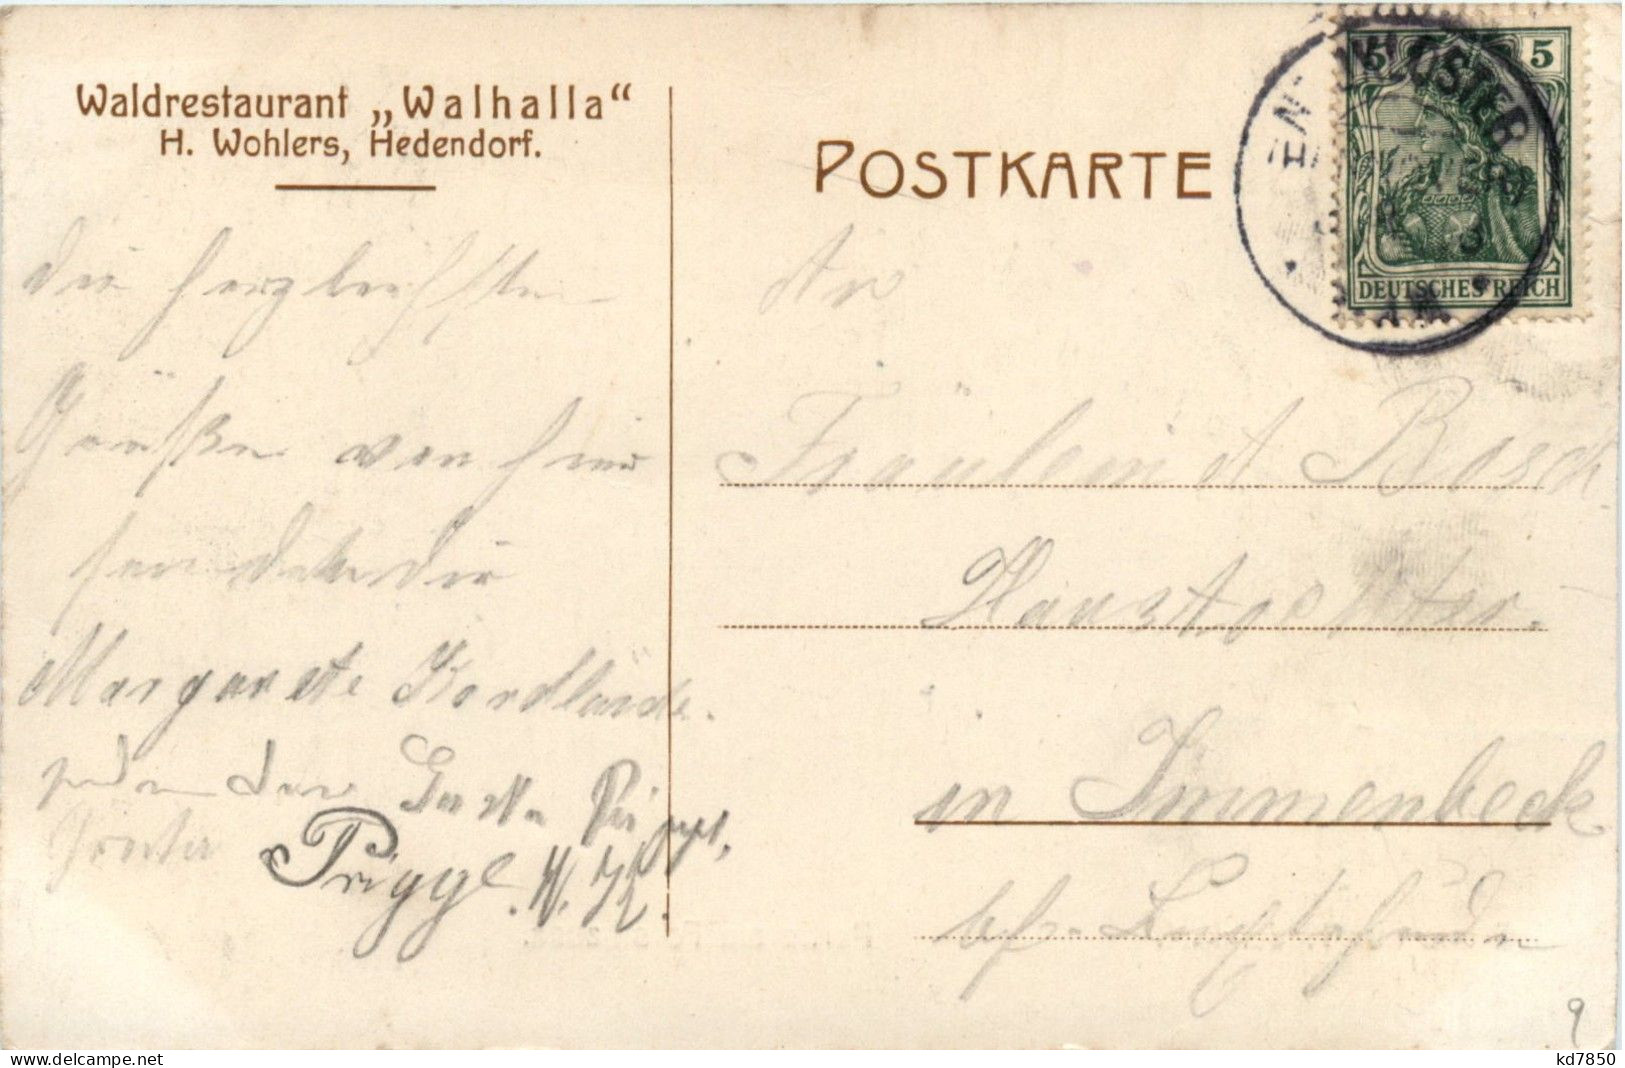 Waldrestaurant „Walhalla“
H. Wohlers, Hedendorf.
POSTKARTE
5 5
DEUTSCHES REICH
KLOSTER
Die herzlichsten
Grüße von hier
sendet dir
Margarete
Grete
Prigge. W. K.
An
Fräulein A Bosch
Haustochter.
in Immenbeck
bei Buxtehude
9
kd7850